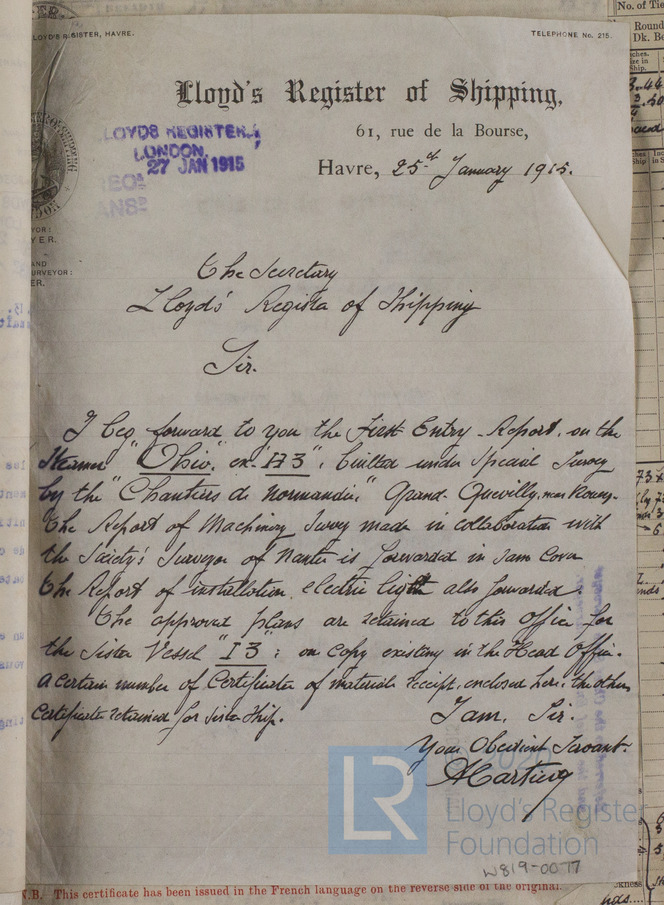 LLOYD'S REGISTER, HAVRE.
TELEPHONE No. 215.
Lloyd's Register of Shipping,
61, rue de la Bourse,
Havre, 25st January 1915.
LLOYDS REGISTER
LONDON.
27 JAN 1915
The Secretary
Lloyd's Register of Shipping
Sir.
I beg forward to you the First Entry Report, on the
Steamer "Ohio" ex "H 3", builted under Special Survey
by the "Chantiers de Normandie," Grand-Quevilly, near Rouen.
The Report of Machinery Survey made in collaboration with
the Society's Surveyor of Nantes is forwarded in Sam Cover
the Report of installation electric light also forwarded.
The approved plans are retained to this office for
the Sister Vessel "I 3": on copy existing in the Head Office.
A certain number of Certificate of materials receipt, enclosed here: the others
Certificate retained for Sister Ship.
I am, Sir.
Your Obedient Servant.
LR
Lloyd's Register
Foundation
W819-0077
N.B. This certificate has been issued in the French language on the reverse side of the original.